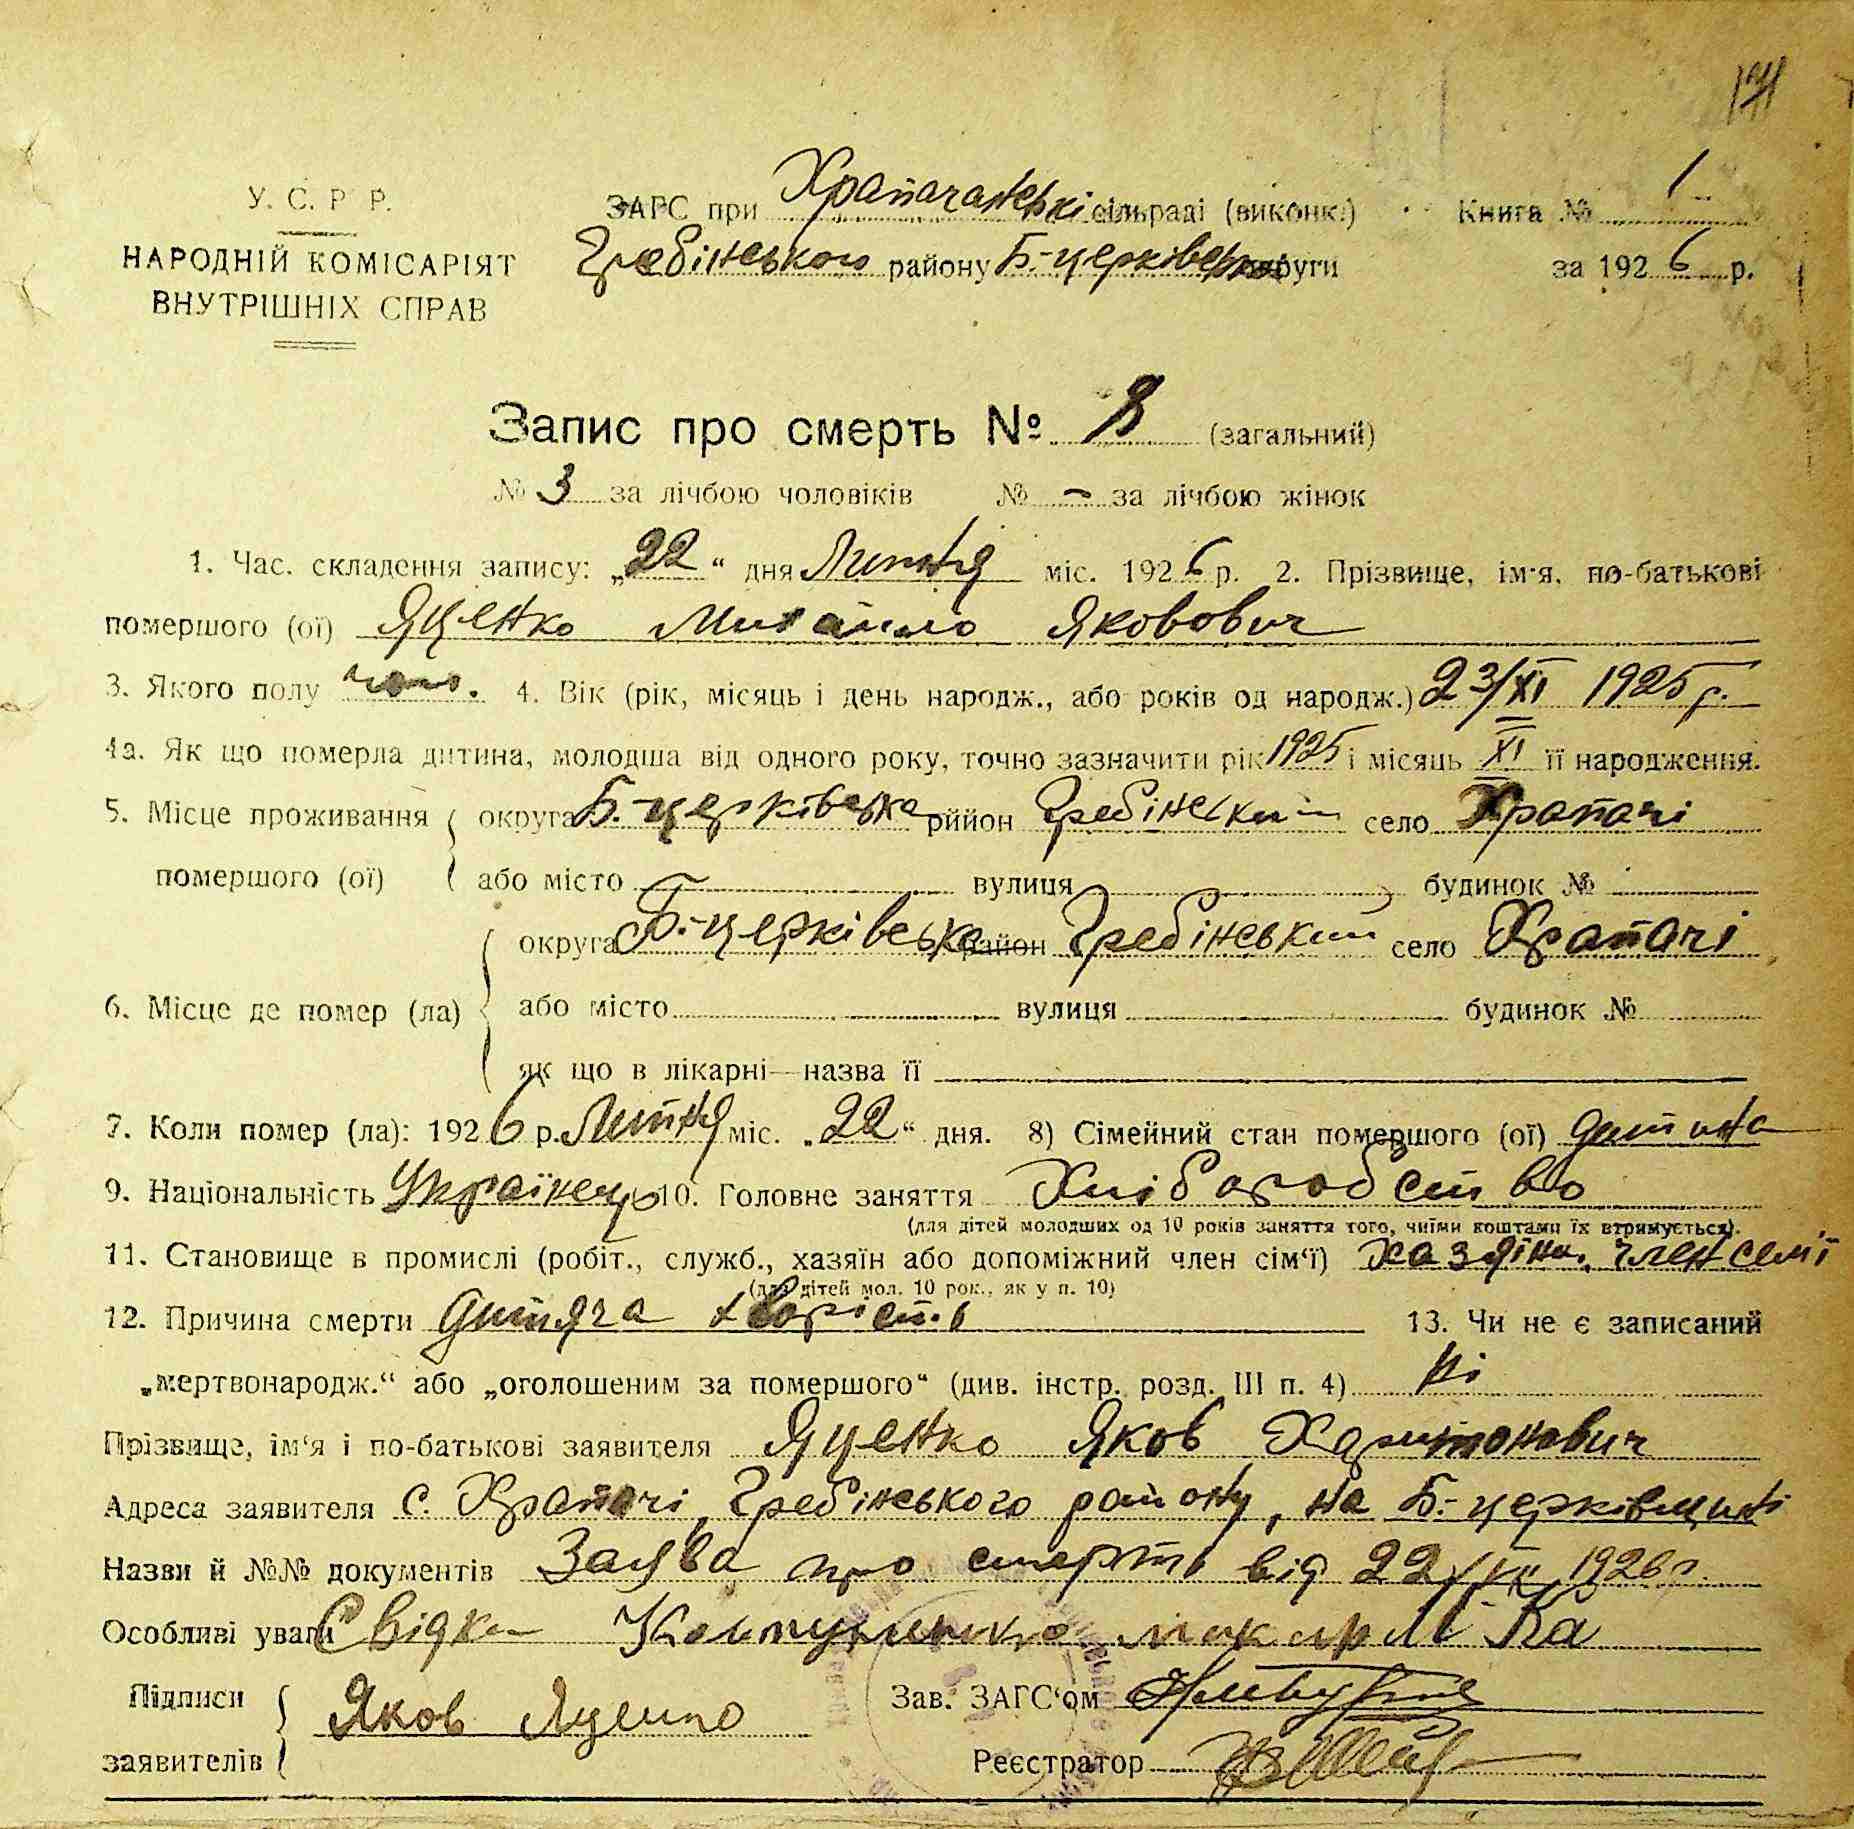 171
У. С. Р. Р.
НАРОДНІЙ КОМІСАРІЯТ
ВНУТРІШНІХ СПРАВ
ЗАГС при Храпачанські сільраді (виконк.) Книга № 1
Гребінського району Б.-церківської округи за 1926 р.
Запис про смерть № 8 (загальний)
№ 3 за лічбою чоловіків № – за лічбою жінок
1. Час. складення запису: „22“ дня Липня міс. 1926 р. 2. Прізвище, ім'я, по-батькові
помершого (ої) Яценко Михайло Якович
3. Якого полу чол. 4. Вік (рік, місяць і день народж., або років од народж.) 23/XI 1925 р.
4а. Як що померла дитина, молодша від одного року, точно зазначити рік 1925 і місяць XI її народження.
5. Місце проживання округа Б.-церківська рййон Гребінський село Храпачі
помершого (ої) або місто вулиця будинок №
округа Б.-церківська район Гребінський село Храпачі
6. Місце де помер (ла) або місто вулиця будинок №
як що в лікарні—назва її
7. Коли помер (ла): 1926 р. Липня міс. „22“ дня. 8) Сімейний стан помершого (ої) дитина
9. Національність Українець 10. Головне заняття Хліборобство
(для дітей молодших од 10 років заняття того, чиїми коштами їх втримується).
11. Становище в промислі (робіт., служб., хазяїн або допоміжний член сім'ї) хазяїна, член семї
(для дітей мол. 10 рок., як у п. 10)
12. Причина смерти дитяча хворість 13. Чи не є записаний
„мертвонародж.“ або „оголошеним за помершого“ (див. інстр. розд. III п. 4) ні
Прізвище, ім'я і по-батькові заявителя Яценко Яков Харитонович
Адреса заявителя с. Храпачі, Гребінського району, на Б.-церківщині
Назви й №№ документів Заява про смерть від 22/VII 1926 р.
Особливі уваги Свідки
Підписи
заявителів Яков Яценко
Зав. ЗАГС'ом
Реєстратор